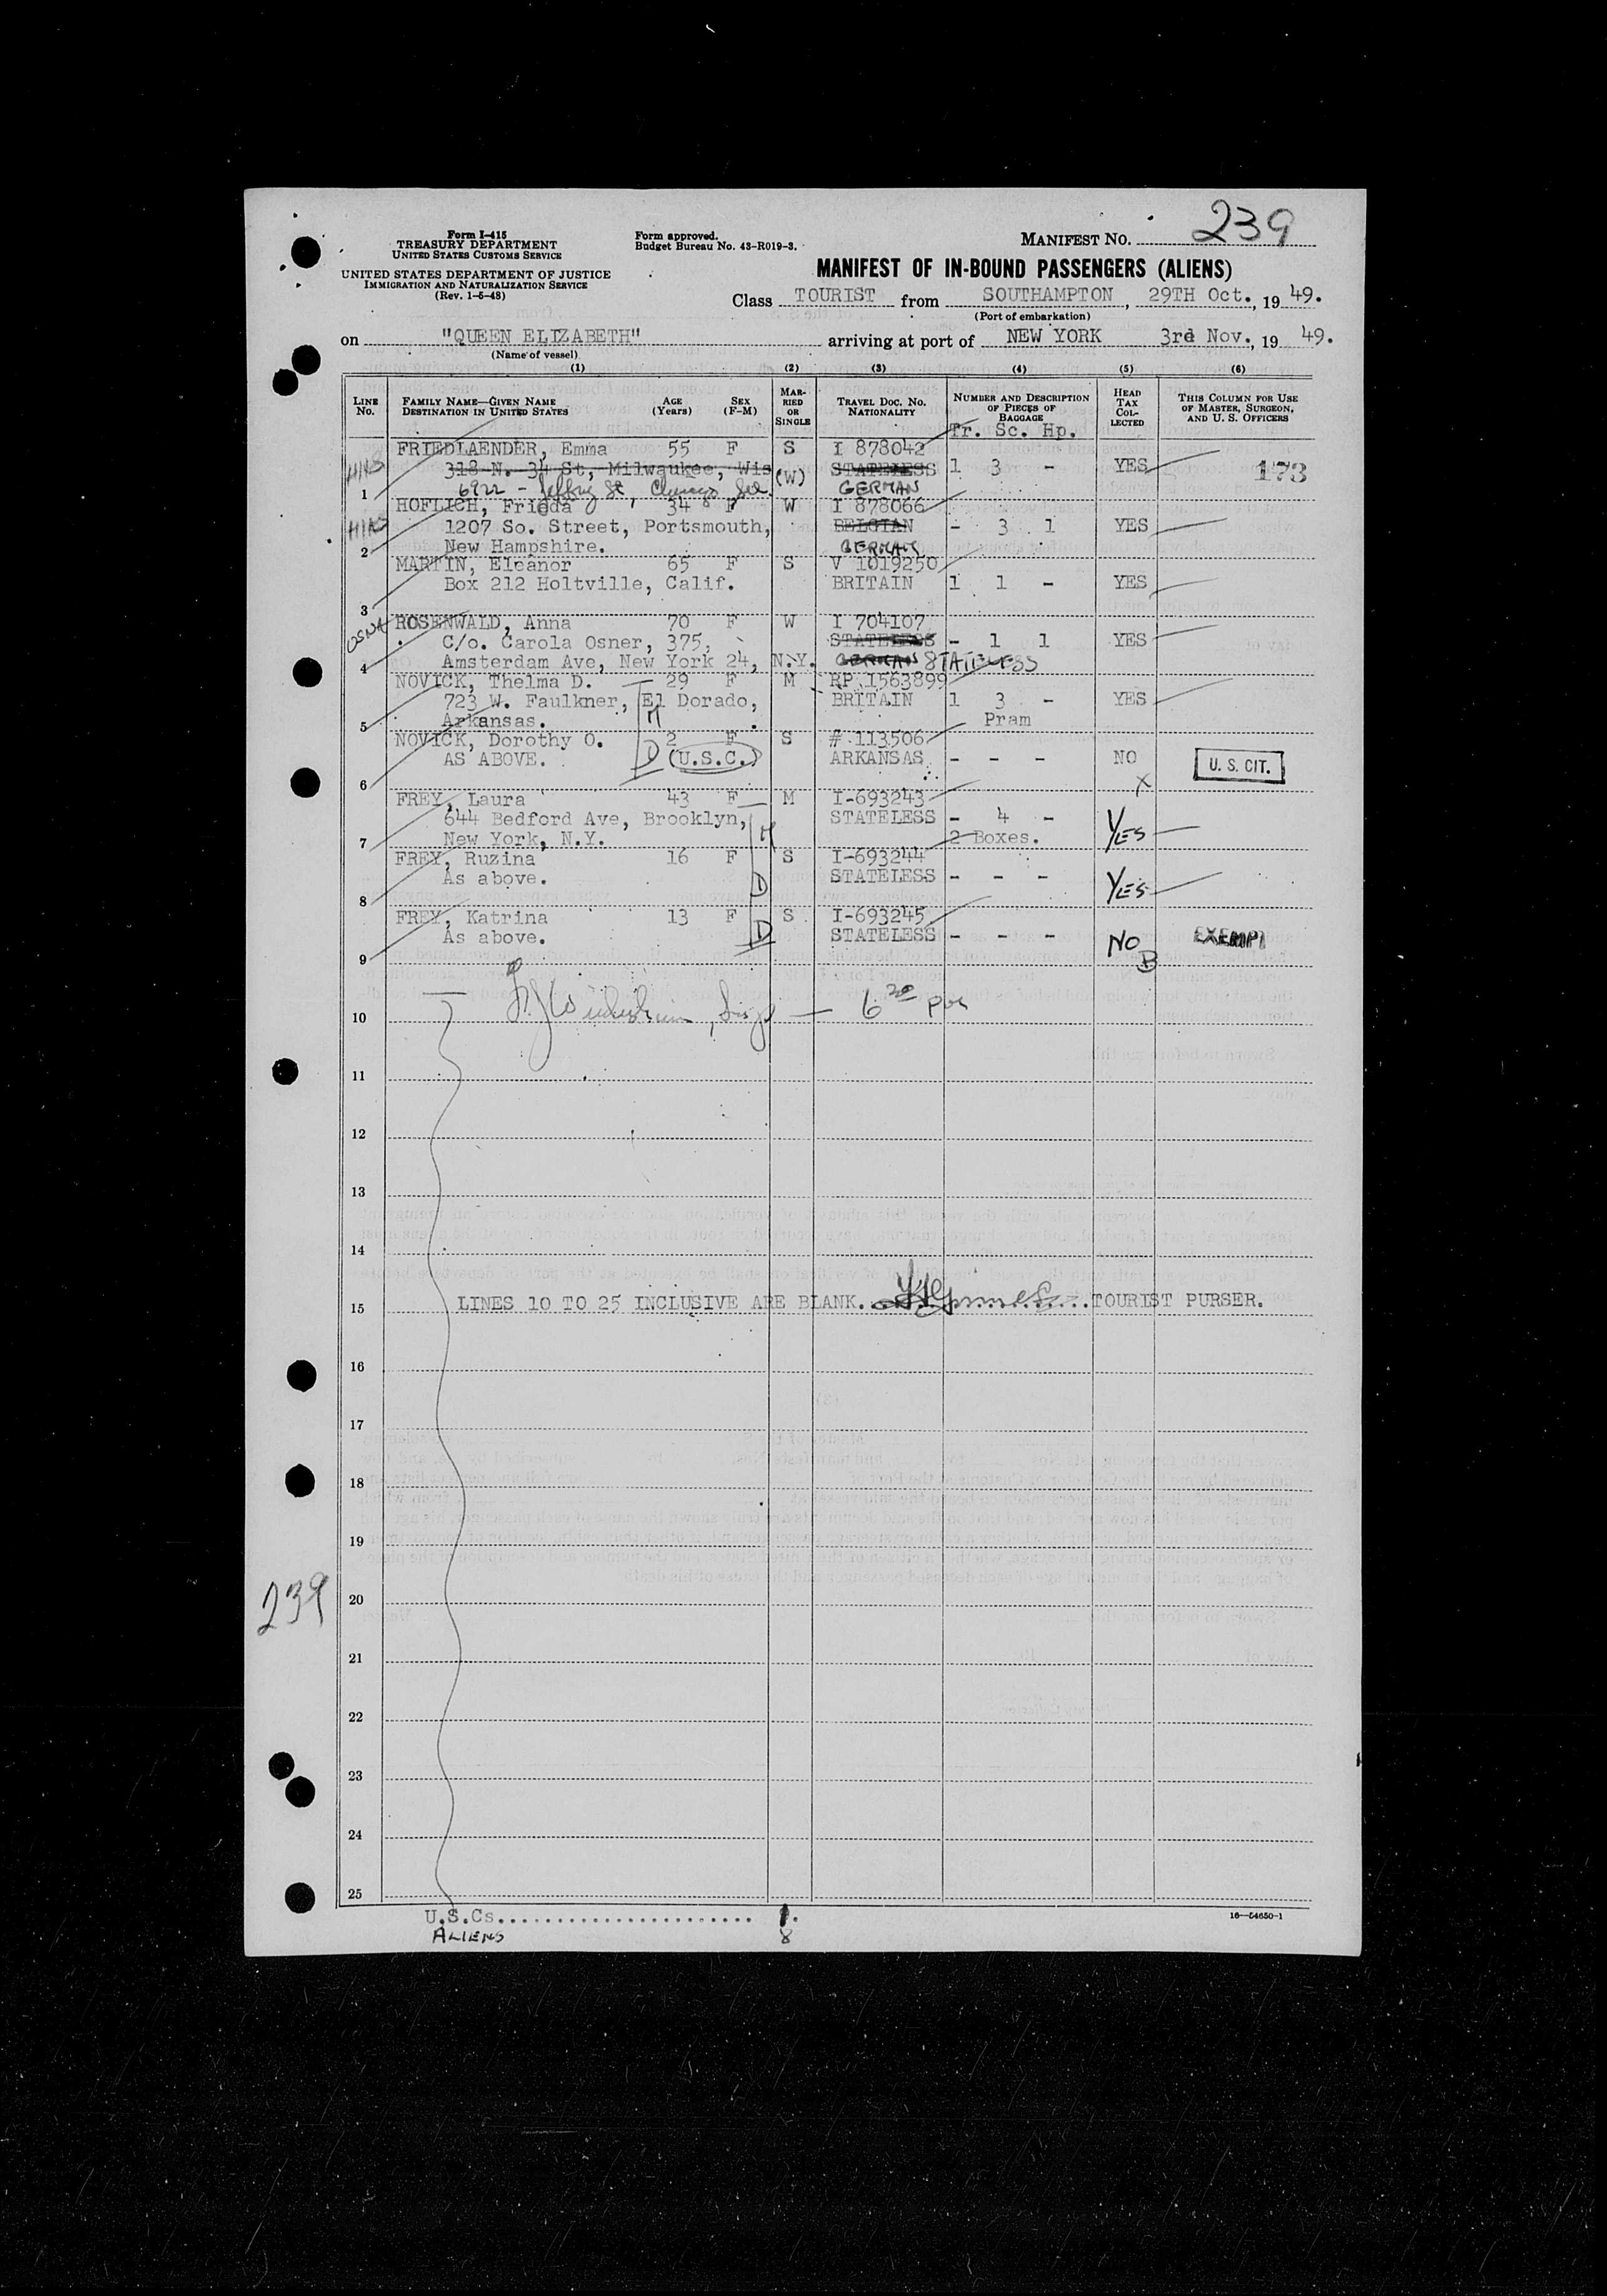 Form I-415
TREASURY DEPARTMENT
UNITED STATES CUSTOMS SERVICE
UNITED STATES DEPARTMENT OF JUSTICE
IMMIGRATION AND NATURALIZATION SERVICE
(Rev. 1-5-48)
Form approved.
Budget Bureau No. 43-R019-3.
MANIFEST NO. 239
MANIFEST OF IN-BOUND PASSENGERS (ALIENS)
Class TOURIST from SOUTHAMPTON, 29TH Oct., 19 49.
(Port of embarkation)
on "QUEEN ELIZABETH" arriving at port of NEW YORK 3rd Nov., 19 49.
(Name of vessel)
(1) (2) (3) (4) (5) (6)
LINE No.
FAMILY NAME—GIVEN NAME
DESTINATION IN UNITED STATES
AGE (Years)
SEX (F-M)
MARRIED OR SINGLE
TRAVEL DOC. NO.
NATIONALITY
NUMBER AND DESCRIPTION OF PIECES OF BAGGAGE
Tr. Sc. Hp.
HEAD TAX COLLECTED
THIS COLUMN FOR USE OF MASTER, SURGEON, AND U. S. OFFICERS
FRIEDLAENDER, Emma 55 F S I 878042
HIAS 318 N. 34 St, Milwaukee, Wis (W) STATELESS 1 3 - YES 173
1 6922 - Jeffrey St, Chicago GERMAN
HOFLICH, Frieda 34 F W I 878066
HIAS 1207 So. Street, Portsmouth, BELGIAN - 3 1 YES
2 New Hampshire. GERMAN
MARTIN, Eleanor 65 F S V 1019250
Box 212 Holtville, Calif. BRITAIN 1 1 - YES
3
USNA ROSENWALD, Anna 70 F W I 704107
C/o. Carola Osner, 375, STATELESS - 1 1 YES
4 Amsterdam Ave, New York 24, N.Y. GERMAN STATELESS
NOVICK, Thelma D. 29 F M RP 1563899
723 W. Faulkner, El Dorado, BRITAIN 1 3 - YES
5 Arkansas. M Pram
NOVICK, Dorothy O. 2 F S # 113506
AS ABOVE. D (U.S.C.) ARKANSAS - - - NO U. S. CIT.
6 X
FREY, Laura 43 F M I-693243
644 Bedford Ave, Brooklyn, STATELESS - 4 - YES
7 New York, N.Y. M 2 Boxes.
FREY, Ruzina 16 F S I-693244
As above. D STATELESS - - - YES
8
FREY, Katrina 13 F S I-693245
As above. D STATELESS - - - NO EXEMPT
9 B
10 6 30 pm
11
12
13
14
15 LINES 10 TO 25 INCLUSIVE ARE BLANK. TOURIST PURSER.
16
17
18
19
239 20
21
22
23
24
25
U.S.Cs....................... 1.
ALIENS 8
16—54650-1